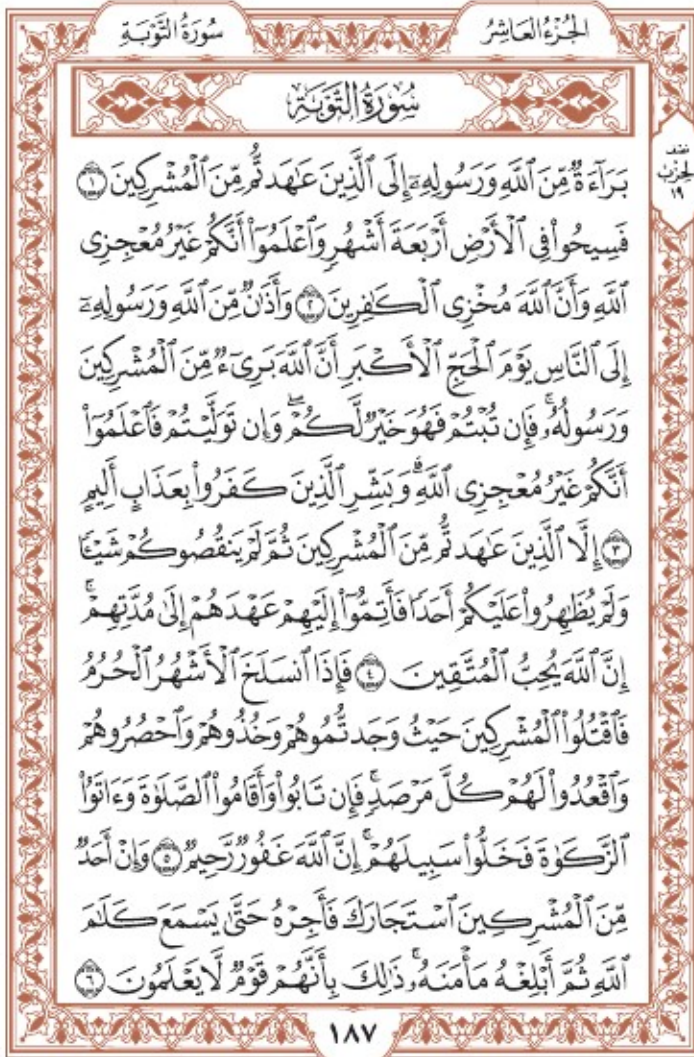 الجُزْءُ العَاشِرُ
سُورَةُ التَّوْبَةِ
سُورَةُ التَّوْبَةِ
نصف
الحِزْبِ
١٩
بَرَآءَةٌ مِّنَ ٱللَّهِ وَرَسُولِهِۦٓ إِلَى ٱلَّذِينَ عَٰهَدتُّم مِّنَ ٱلْمُشْرِكِينَ ۝١
فَسِيحُوا۟ فِى ٱلْأَرْضِ أَرْبَعَةَ أَشْهُرٍ وَٱعْلَمُوٓا۟ أَنَّكُمْ غَيْرُ مُعْجِزِى
ٱللَّهِ وَأَنَّ ٱللَّهَ مُخْزِى ٱلْكَٰفِرِينَ ۝٢ وَأَذَٰنٌ مِّنَ ٱللَّهِ وَرَسُولِهِۦٓ
إِلَى ٱلنَّاسِ يَوْمَ ٱلْحَجِّ ٱلْأَكْبَرِ أَنَّ ٱللَّهَ بَرِىٓءٌ مِّنَ ٱلْمُشْرِكِينَ
وَرَسُولُهُۥ ۚ فَإِن تُبْتُمْ فَهُوَ خَيْرٌ لَّكُمْ ۖ وَإِن تَوَلَّيْتُمْ فَٱعْلَمُوٓا۟
أَنَّكُمْ غَيْرُ مُعْجِزِى ٱللَّهِ ۗ وَبَشِّرِ ٱلَّذِينَ كَفَرُوا۟ بِعَذَابٍ أَلِيمٍ
۝٣ إِلَّا ٱلَّذِينَ عَٰهَدتُّم مِّنَ ٱلْمُشْرِكِينَ ثُمَّ لَمْ يَنقُصُوكُمْ شَيْـًٔا
وَلَمْ يُظَٰهِرُوا۟ عَلَيْكُمْ أَحَدًا فَأَتِمُّوٓا۟ إِلَيْهِمْ عَهْدَهُمْ إِلَىٰ مُدَّتِهِمْ ۚ
إِنَّ ٱللَّهَ يُحِبُّ ٱلْمُتَّقِينَ ۝٤ فَإِذَا ٱنسَلَخَ ٱلْأَشْهُرُ ٱلْحُرُمُ
فَٱقْتُلُوا۟ ٱلْمُشْرِكِينَ حَيْثُ وَجَدتُّمُوهُمْ وَخُذُوهُمْ وَٱحْصُرُوهُمْ
وَٱقْعُدُوا۟ لَهُمْ كُلَّ مَرْصَدٍ ۚ فَإِن تَابُوا۟ وَأَقَامُوا۟ ٱلصَّلَوٰةَ وَءَاتَوُا۟
ٱلزَّكَوٰةَ فَخَلُّوا۟ سَبِيلَهُمْ ۚ إِنَّ ٱللَّهَ غَفُورٌ رَّحِيمٌ ۝٥ وَإِنْ أَحَدٌ
مِّنَ ٱلْمُشْرِكِينَ ٱسْتَجَارَكَ فَأَجِرْهُ حَتَّىٰ يَسْمَعَ كَلَٰمَ
ٱللَّهِ ثُمَّ أَبْلِغْهُ مَأْمَنَهُۥ ۚ ذَٰلِكَ بِأَنَّهُمْ قَوْمٌ لَّا يَعْلَمُونَ ۝٦
١٨٧